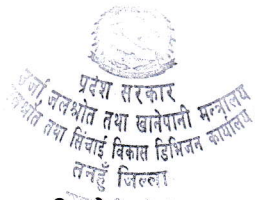 प्रदेश सरकार
उर्जा जलश्रोत तथा खानेपानी मन्त्रालय
जलश्रोत तथा सिंचाई विकास डिभिजन कार्यालय
तनहुँ जिल्ला